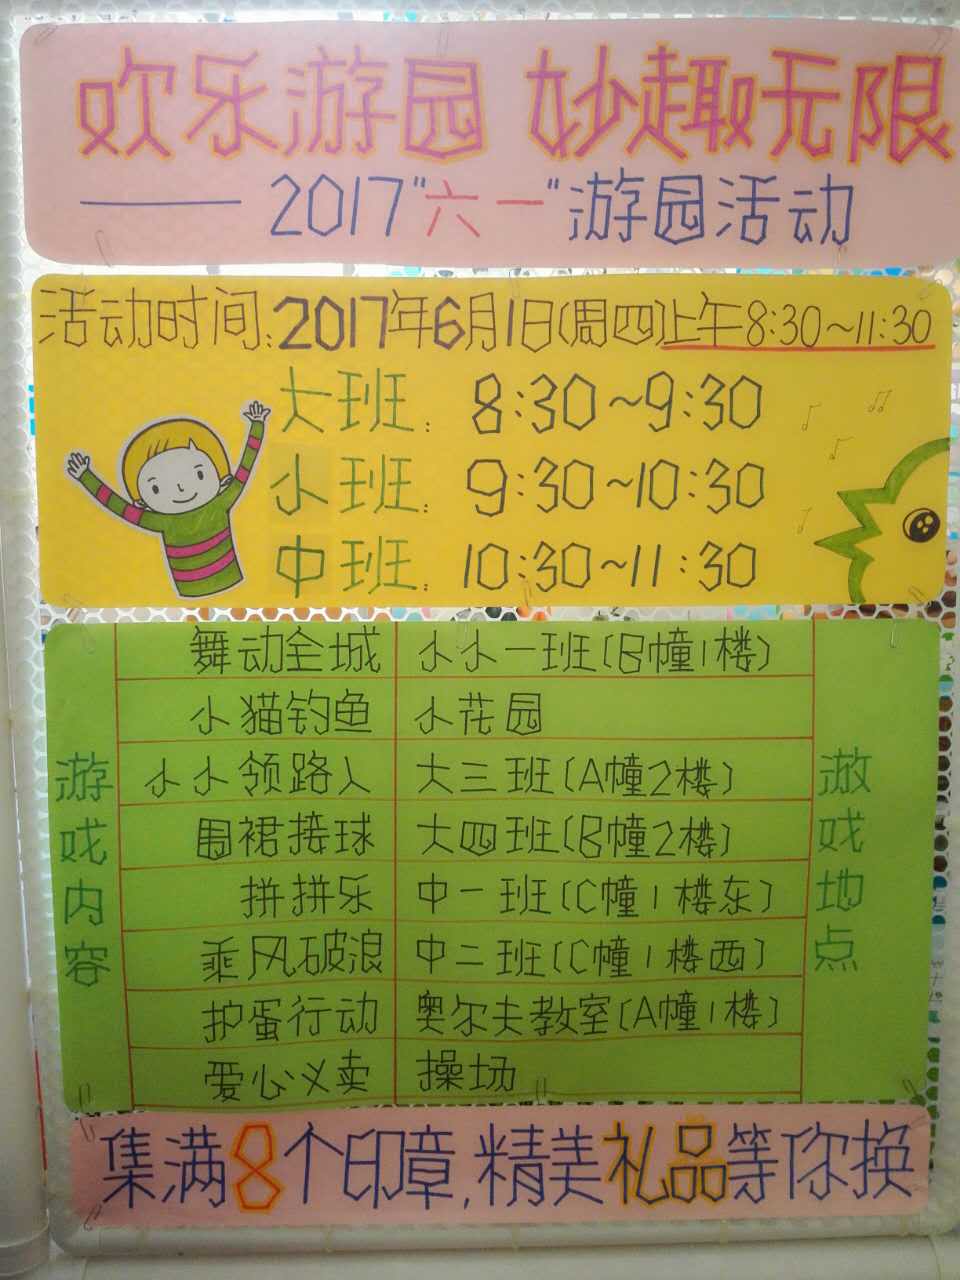 欢乐游园 妙趣无限
——2017"六一"游园活动
活动时间:2017年6月1日(周四)上午8:30~11:30
大班: 8:30~9:30
小班: 9:30~10:30
中班: 10:30~11:30
游戏内容
游戏地点
舞动全城 小小一班(B幢1楼)
小猫钓鱼 小花园
小小领路人 大三班(A幢2楼)
围裙接球 大四班(B幢2楼)
拼拼乐 中一班(C幢1楼东)
乘风破浪 中二班(C幢1楼西)
护蛋行动 奥尔夫教室(A幢1楼)
爱心义卖 操场
集满8个印章,精美礼品等你换